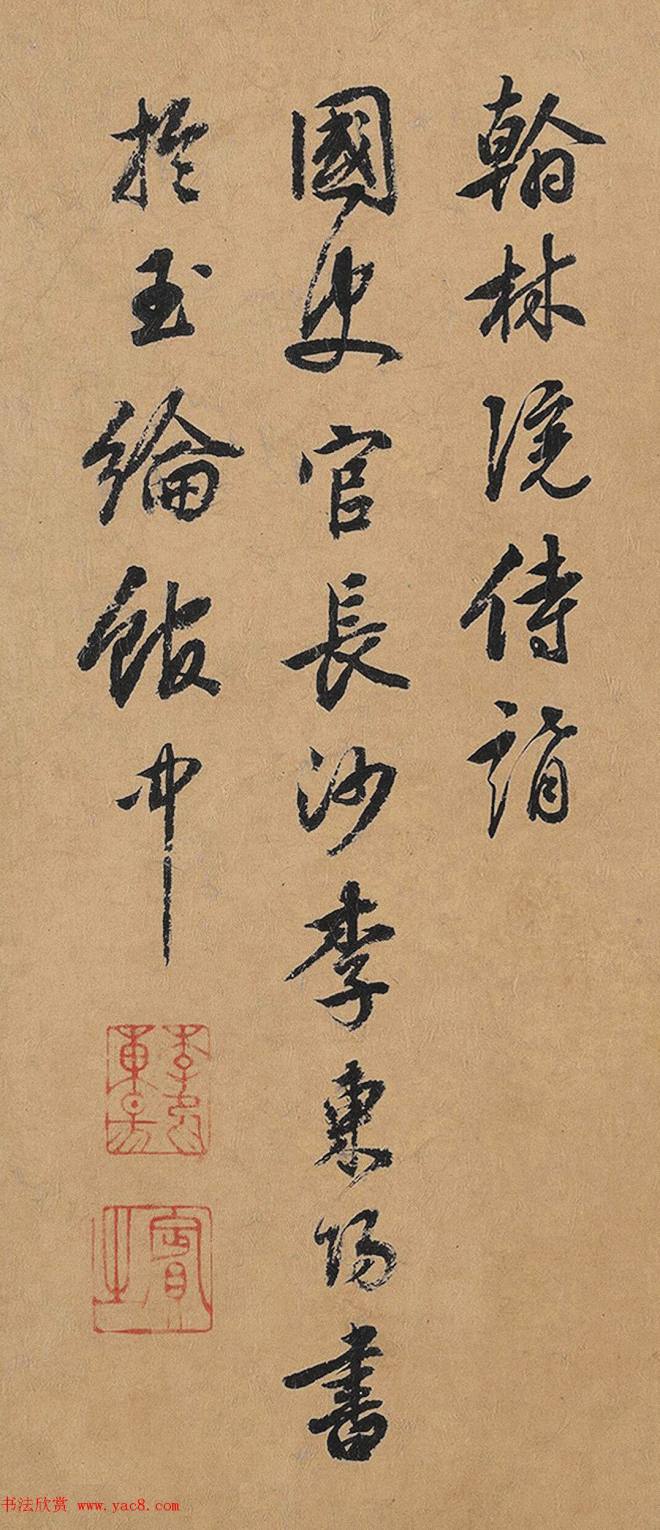 翰林院侍講
國史官長沙李東陽書
於玉綸館中
李東陽
賓之
书法欣赏 www.yac8.com